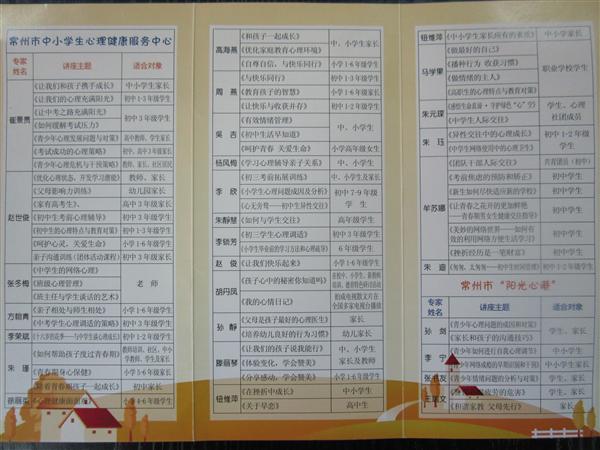 常州市中小学生心理健康服务中心
专家姓名 讲座主题 适合对象
崔景贵
《让我们和孩子携手成长》 中小学生家长
《让我们的心理充满阳光》 初中1-3年级学生
《让中考之路充满阳光》 初中3年级学生
《如何缓解考试压力》 初中3年级学生
《青少年心理发展问题与对策》 高中教师、学生家长
《考试成功的心理策略》 初中、高中3年级家长
《青少年心理危机与干预策略》 教师、家长、社区居民
赵世俊
《优化心理状态,开发学习潜能》 教师、家长
《父母影响力训练》 幼儿园家长
《家有高考生》、 高中3年级家长
《初中生考前心理辅导》 初中3年级学生
《初中生的心理特点与教育对策》 初中学生家长
《呵护心灵,关爱生命》 小学1-6年级家长
亲子沟通训练(团体活动课程) 初中3年级家长
张冬梅
《中学生的网络心理》
《班级心理管理》 老 师
《班主任与学生谈话的艺术》
方翰青
《亲子相处与师生相处》 小学1-6年级学生
《中考学生心理调适的策略》 初中3年级学生
李荣斌
初中3年级学生
朱 瑾
《如何帮助孩子度过青春期》
《青春期身心保健》 小学5-6年级学生
《陪着青春期孩子一起成长》 初中家长
徐丽
小学4-6年级学生
高海燕
《和孩子一起成长》
《优化家庭教育心理环境》 中、小学生家长
《自尊自信,与快乐同行》 小学1-6年级学生
周 燕
《与快乐同行》 初中1-3年级学生
《教育孩子的智慧》 小学1-6年级家长
《让快乐与收获并存》 初中1-2年级学生
吴 吉
《有效情绪管理》
《初中生活早知道》 中、小学生
《呵护青春 关爱生命》 小学高年级女生
杨凤梅
《学习心理辅导亲子关系》 中、小学生
李 欣
《初三考前拓展训练》 初中3年级学生
《小学生心理问题成因及分析》
《心无旁骛——初中生异性交往》 初中7-9年级学生
朱静慧
《如何与学生交往》 高年级学生
李锁芳
《初三学生心理调适》 初中3年级学生
《小学生毕业前的学习方法和心理疏导》 6年级学生
赵 俊
《让我们快乐起来》 小学1-6年级学生
胡丹凤
《孩子心中的秘密你知道吗》
《我的心情日记》
孙 静
《父母是孩子最好的心理医生》 家长
《培养幼儿良好的行为习惯》 幼儿家长
滕丽琴
《让我们的孩子说我能行》 中、小学生
《体验变化,学会赞美》 家长及教师
《分享感动,学会赞美》 小学1-6年级学生
钮维萍
《在挫折中成长》 中小学生
《关于早恋》 高中生
钮维萍
《中小学生家长所有的素质》 中小学家长
马学果
《做最好的自己》
《播种行为 收获习惯》
《做情绪的主人》 职业学校学生
《高职生的心理特点与教育对策》
朱元璨
学生、心理
《中学生人际交往》 社团成员
朱 珏
《异性交往中的心理成长》 初中1-2年级学生
《中学生网络使用中的心理卫生》
牟苏娜
《团干部人际交往》 共青团员(初中)
《考前焦虑的预防和矫正》 初中3年级学生
《新生如何尽快适应新的学习》 初中学生
《让青春之花开的更加鲜艳
——青春期男女生健康交往指导》 初中学生
《美妙的网络世界——如何有
效的利用网络方便生活学习》 初中学生
《挫折经历是一笔财富》 初中学生
朱 迪
初中1-2年级学生
常州市“阳光心港”
专家姓名 讲座主题 适合对象
孙 剑
《青少年心理问题的成因和对策》 学生、家长
《家长和孩子的沟通技巧》
李 宁
《青少年如何进行自我心理调节》 中小学生
《青少年网络成瘾的早期识别和干预》 学生、家长
《青少年情绪问题的分析与对策》 学生、家长
疲劳的危害》 学生
《和谐家教 父母先行》 家长